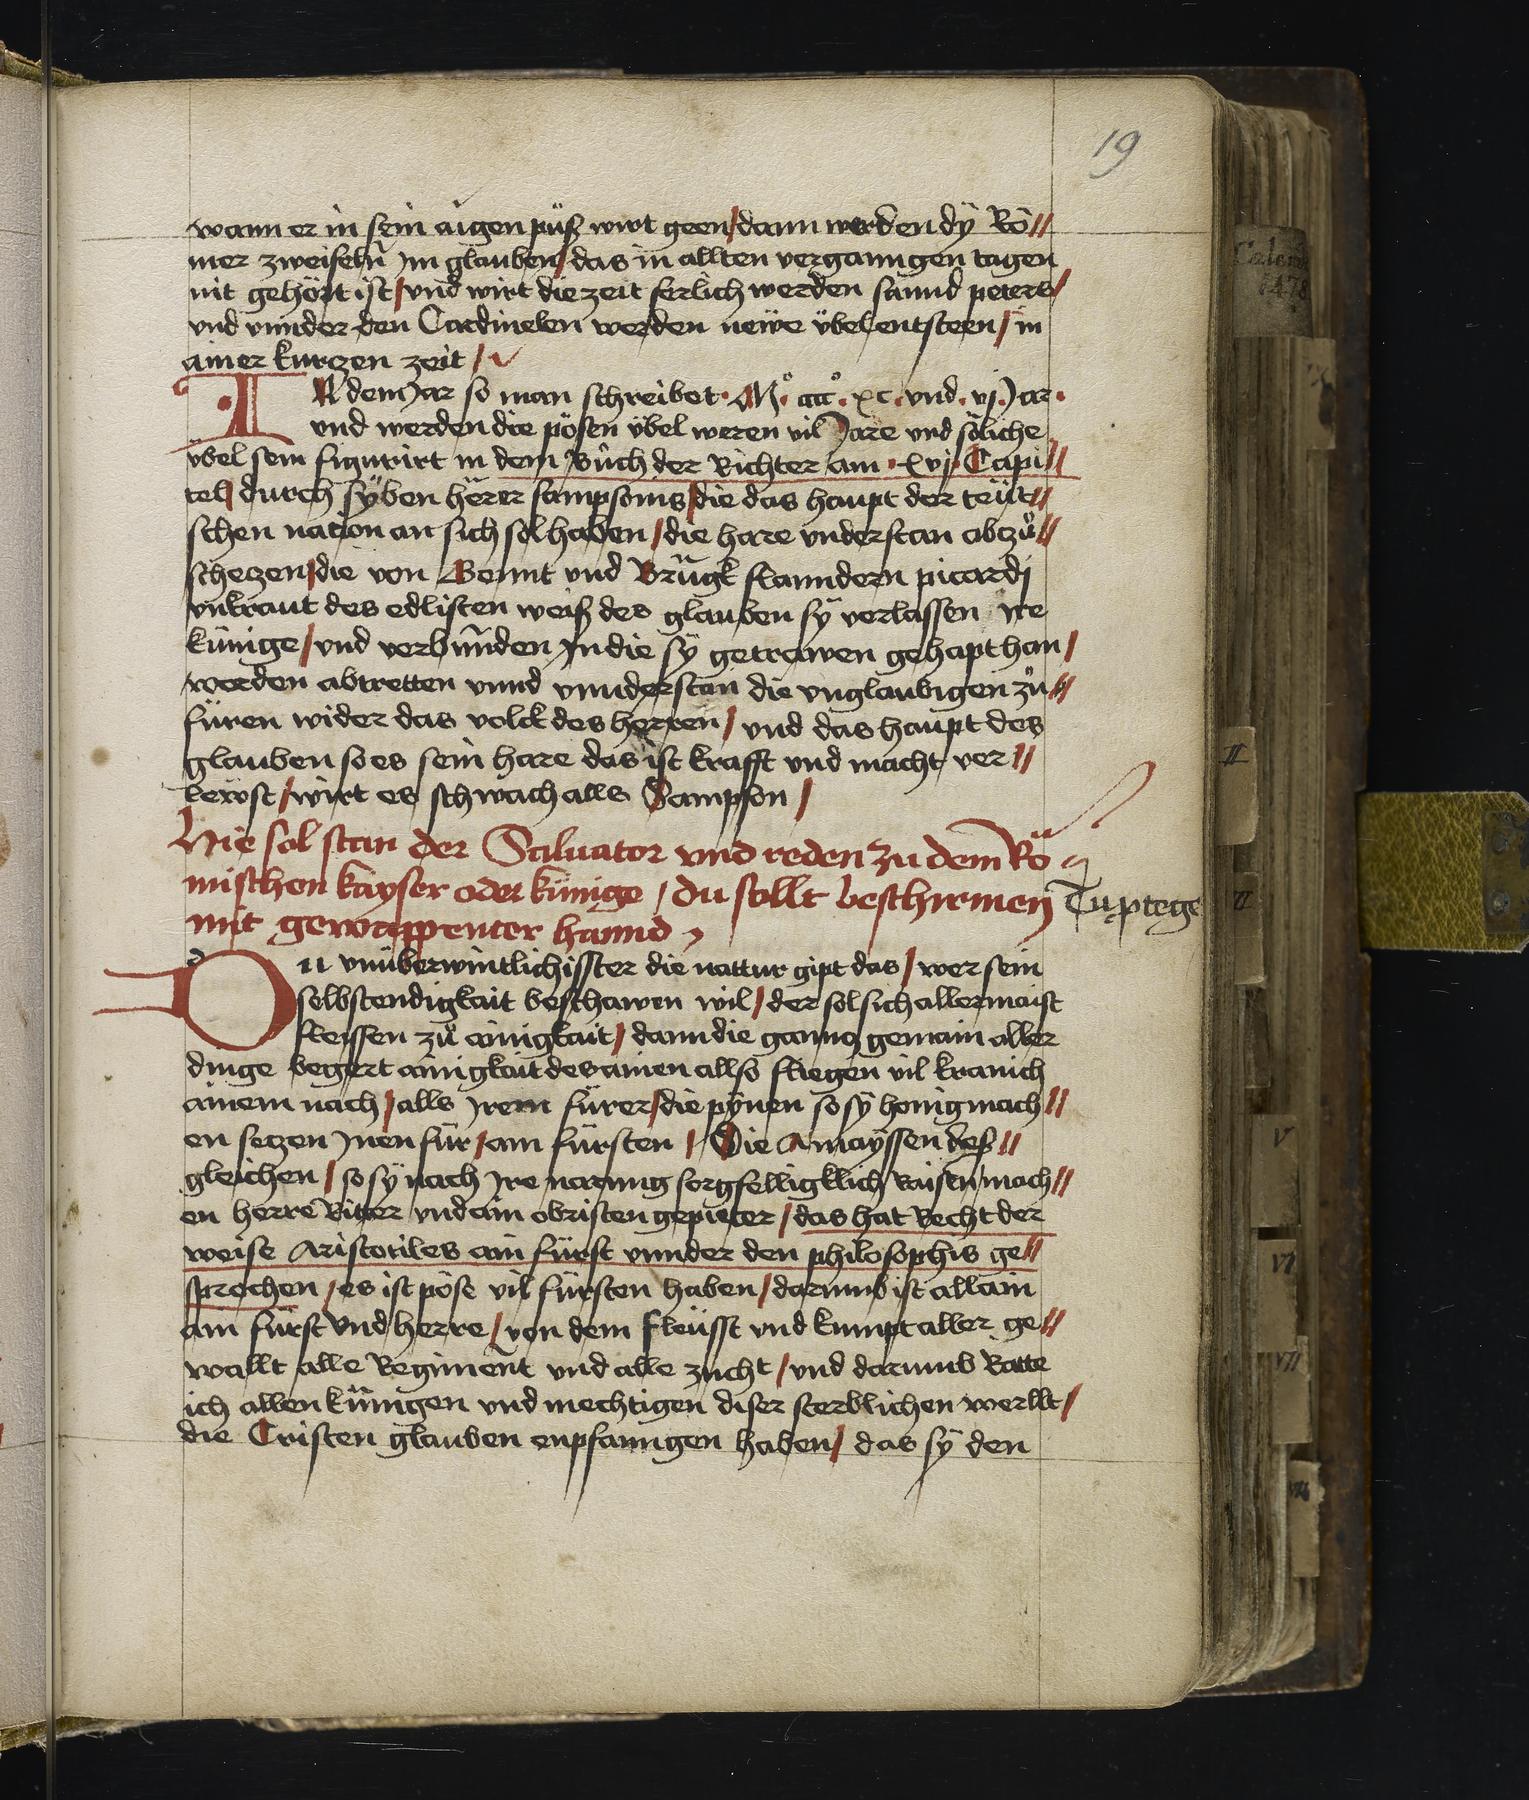 19
wann er in sein aigen púß wirt geen / dann werden dÿ Rö//
mer zweifeln Im glauben / das in allten vergangen tagen
nit gehört ist / vnd wirt die zeit ferlich werden sannd peters /
vnd vnnder den Cardinelen werden newe übel entsteen / in
ainer kurczen zeit /
IN dem Jar so man schreibet · M° cccc° · xc · vnd · vj · Jar ·
vnd werden die pösen übel weren vil Jare vnd söliche
übel sein figurirt in dem Bůch der Richter am · xvj · Capi//
tel / durch sÿben hörer sampsonis / die das haupt der teüt//
schen nation an sich sol haben / die hare vnderstan abzů//
schezen / die von Gennt vnd Brügk flanndern picardj
vnkraut des edlisten weiß des glauben sÿ verlassen ire
künige / vnd verbünden In die sÿ getrawen gehapt han /
werden abtretten vnnd vnnderstan die vnglaubigen zů//
füren wider das volck des herren / vnd das haupt des
glauben so es sein hare das ist krafft vnd macht ver//
lewst / wirt es schwach alls Sampson /
Hie sol stan der Saluator vnd reden zu dem Rö
mischen kayser oder künige / du sollt beschirmen
mit gewappenter hannd
Tu ptege
DU vnüberwintlichisster die nattur gipt das / wer sein
selbstendigkait beschawen wil / der sol sich allermaist
fleissen zů ainigkait / dann die ganng gemain aller
dinge begert ainigkait des ainen allso fliegen vil kranich
ainem nach / alls Irem fürer / die pÿnen so sÿ honig mach//
en seczen Inen für / ain fürsten / Die Amayssen deß//
gleichen / so sÿ nach Ire narung sorgfelligklich Raisen mach//
en herre Ritter vnd ain obristen gepieter / das hat Recht der
weise Aristotiles ain fürst vnnder den philosophis ge//
sprochen / es ist pöse vil fürsten haben / darumb ist allain
ain fürst vnd herre / von dem fleüsst vnd kumpt aller ge//
wallt alle Regiment vnd alle zucht / vnd darumb Ratte
ich allen künigen vnd mechtigen diser sterblichen werllt /
die Cristen glauben enpfanngen haben / das sÿ den
II
V
VI
VII